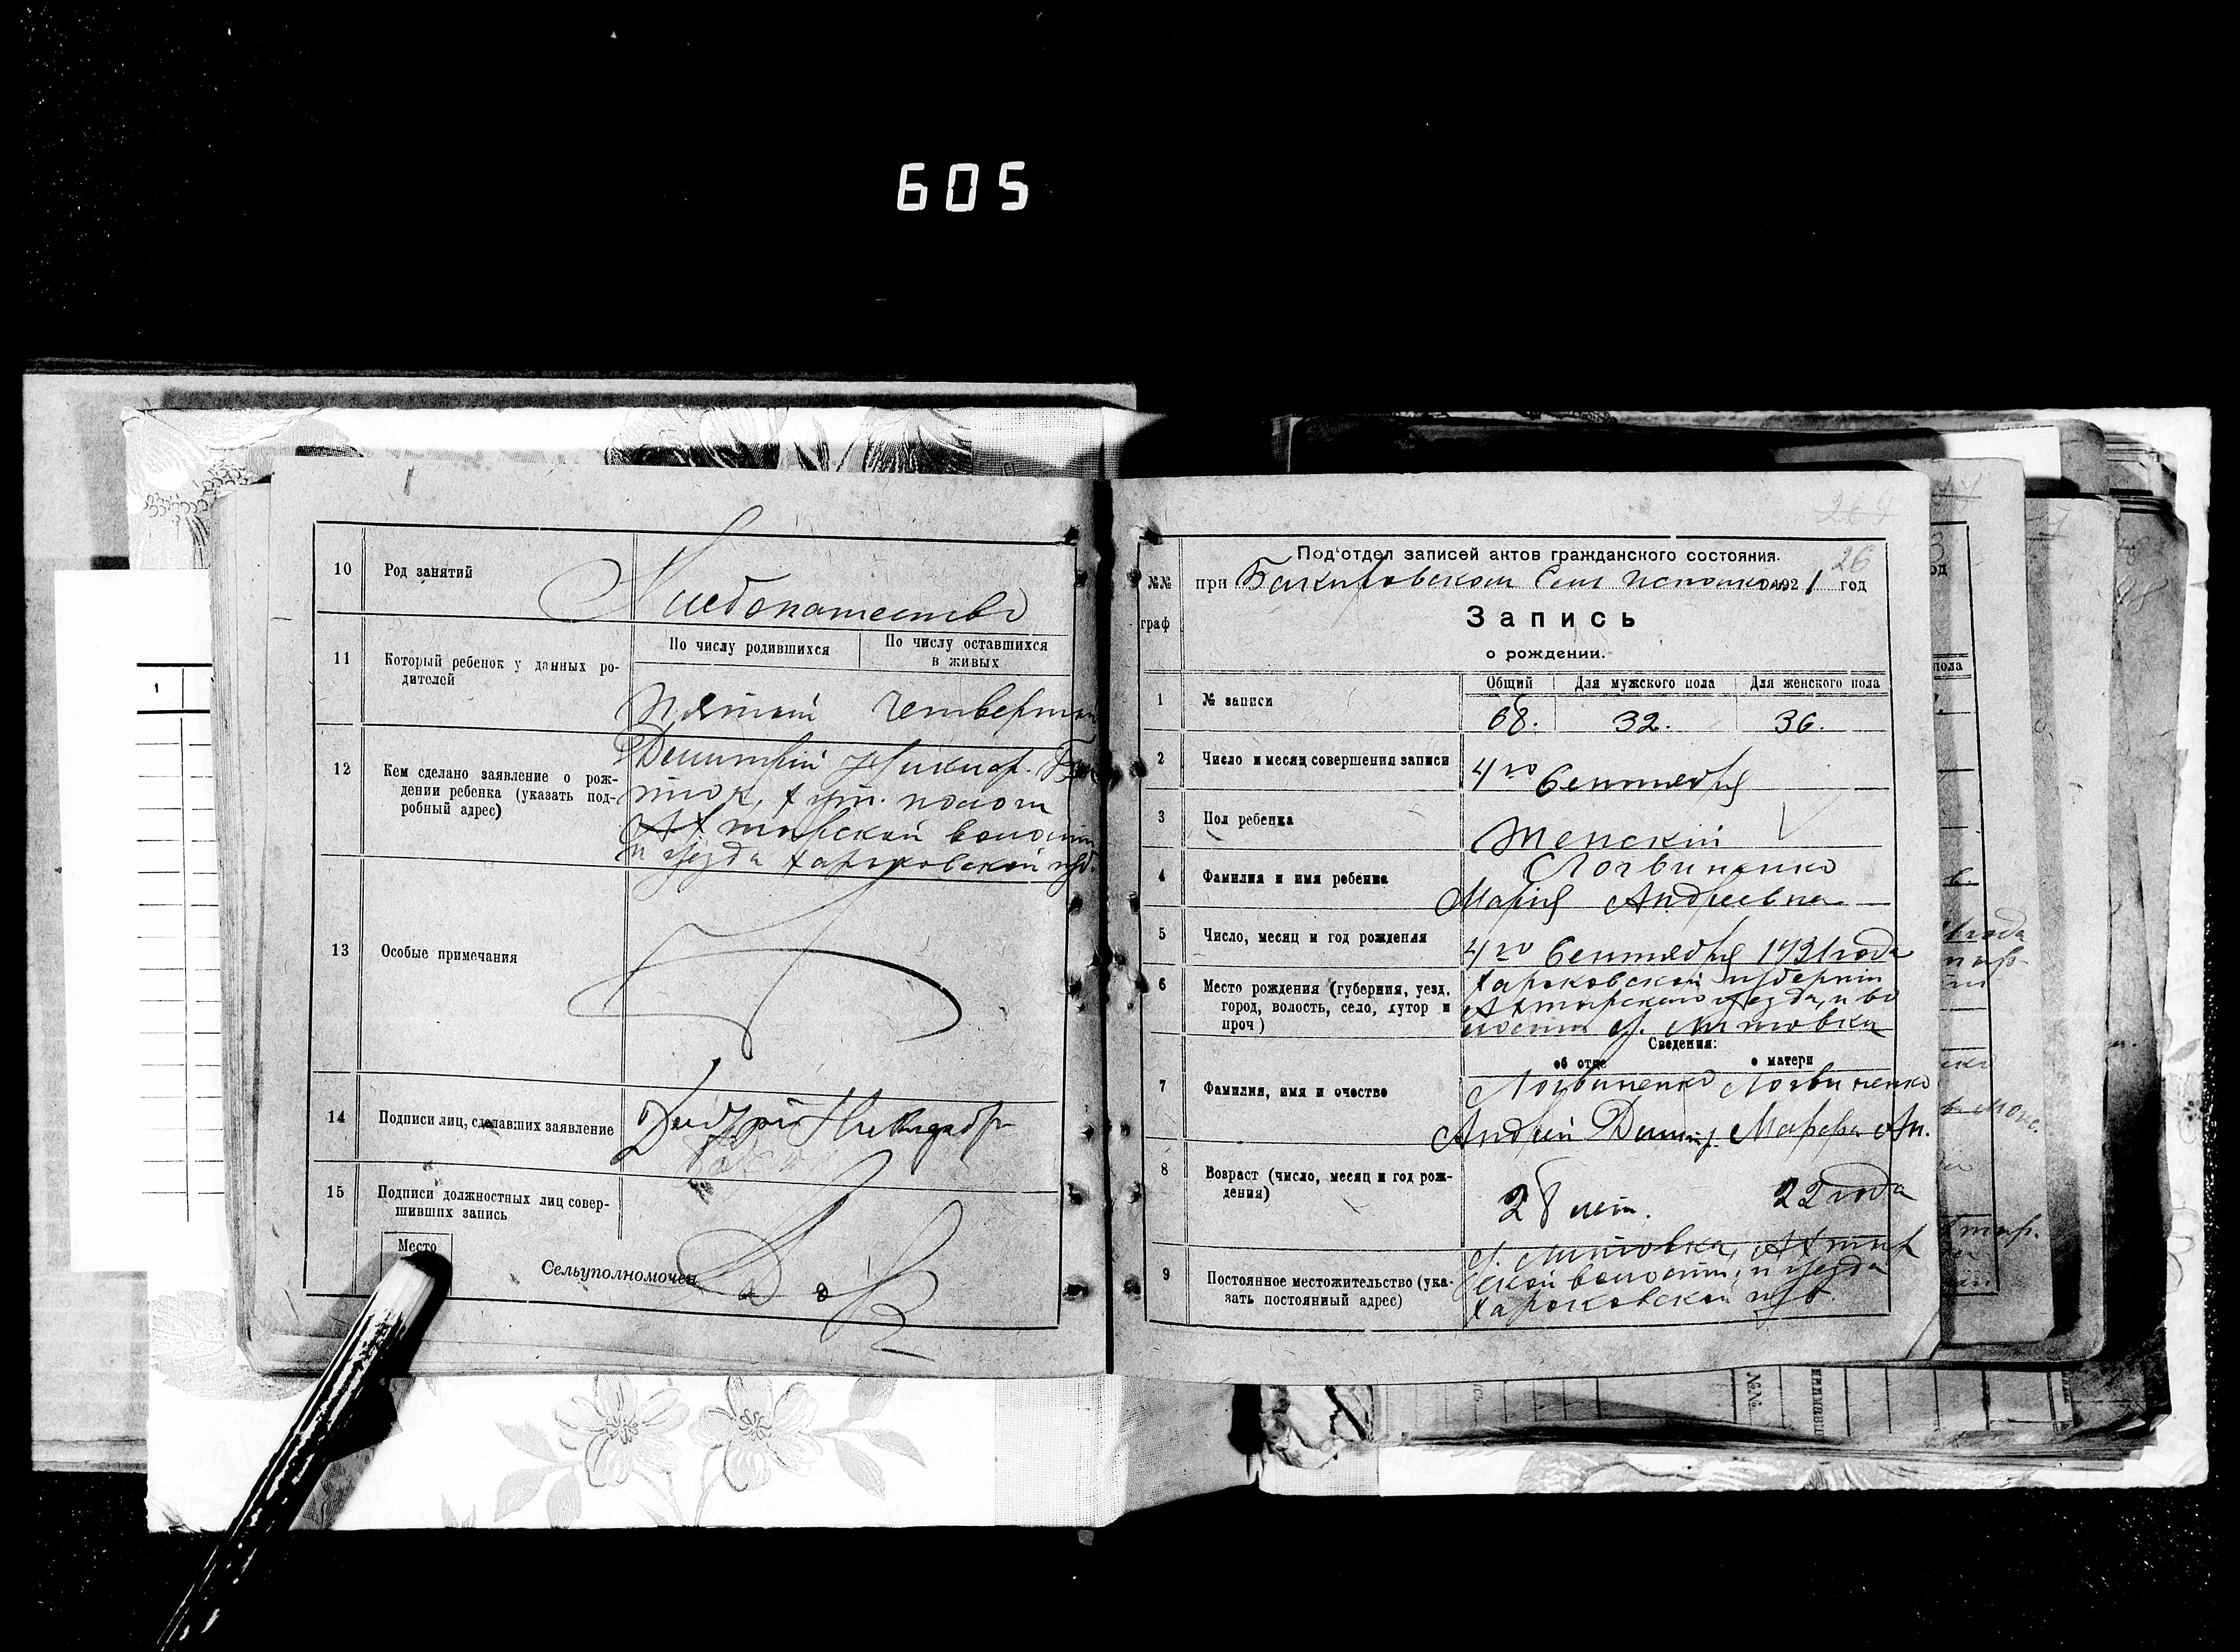 605
10 Род занятий
Хлебопашество
11 Который ребенок у данных ро-
дителей
По числу родившихся
По числу оставшихся
в живых
Пятый Четвертый
12 Кем сделано заявление о рож-
дении ребенка (указать под-
робный адрес)
Димитрий Никиф.
хут.
Ахтырской волости
и уезда Харьковской губ.
13 Особые примечания
14 Подписи лиц, сделавших заявление
15 Подписи должностных лиц совер-
шивших запись
Место
Сельуполномочен
26
Под'отдел записей актов гражданского состояния.
№№ граф
при Бакировском Сель исполкоме 1921 год
Запись
о рождении.
1 № записи
Общий Для мужского пола Для женского пола
68. 32. 36.
2 Число и месяц совершения записи
4го Сентября
3 Пол ребенка
Женский
4 Фамилия и имя ребенка
Логвиненко
Мария Андреевна
5 Число, месяц и год рождения
4го Сентября 1921 года
6 Место рождения (губерния, уезд,
город, волость, село, хутор и
проч)
Харьковской губернии
Ахтырского уезда, и во
лости х. Литовка
Сведения:
об отце о матери
7 Фамилия, имя и очество
Логвиненко Логвиненко
Андрей Димит. Марфа Ан.
8 Возраст (число, месяц и год рож-
дения)
28 лет. 22 года
9 Постоянное местожительство (ука-
зать постоянный адрес)
х. Литовка, Ахтыр
ской волости, и уезда
Харьковской губ.